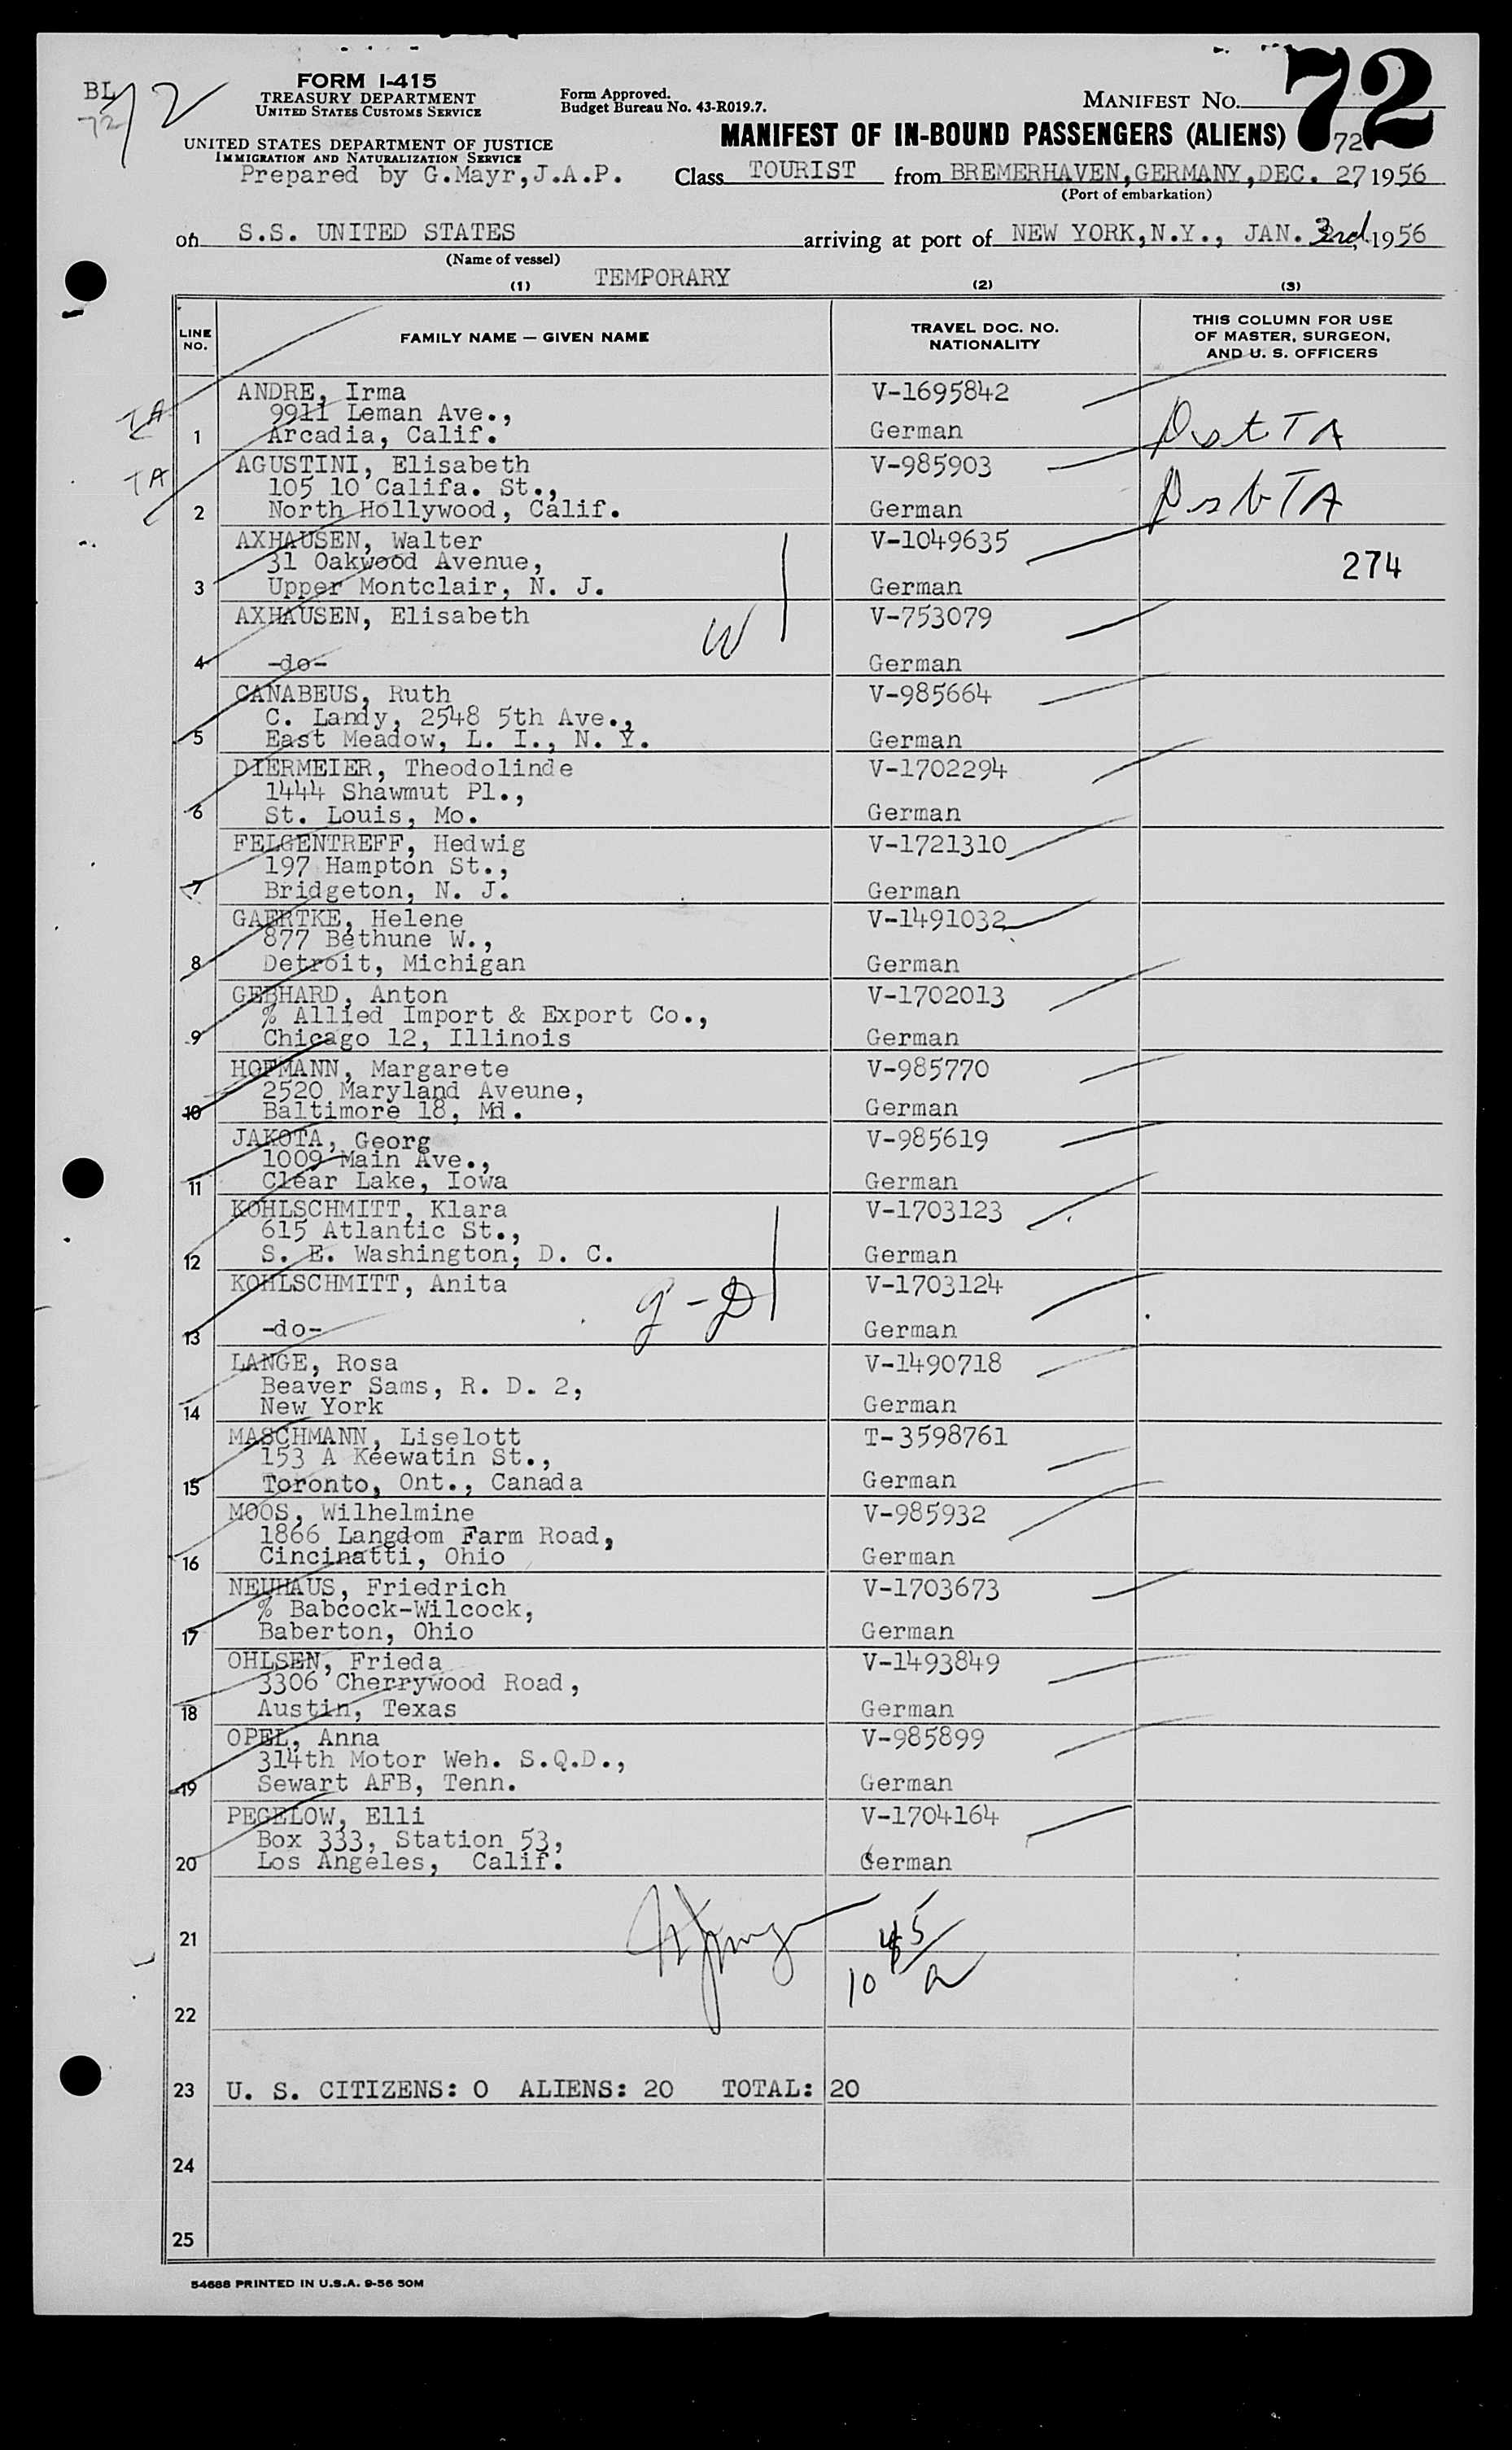 BL
72
72
FORM I-415
TREASURY DEPARTMENT
UNITED STATES CUSTOMS SERVICE
UNITED STATES DEPARTMENT OF JUSTICE
IMMIGRATION AND NATURALIZATION SERVICE
Prepared by G.Mayr,J.A.P.
Form Approved.
Budget Bureau No. 43-R019.7.
MANIFEST NO. 72
MANIFEST OF IN-BOUND PASSENGERS (ALIENS) 72
Class TOURIST from BREMERHAVEN,GERMANY,DEC. 27, 1956
(Port of embarkation)
on S.S. UNITED STATES arriving at port of NEW YORK,N.Y., JAN. 3rd, 1956
(Name of vessel)
(1) TEMPORARY (2) (3)
LINE NO. FAMILY NAME — GIVEN NAME TRAVEL DOC. NO. NATIONALITY THIS COLUMN FOR USE OF MASTER, SURGEON, AND U. S. OFFICERS
ANDRE, Irma V-1695842
TA 9911 Leman Ave.,
1 Arcadia, Calif. German TA
AGUSTINI, Elisabeth V-985903
TA 105 10 Califa. St.,
2 North Hollywood, Calif. German TA
AXHAUSEN, Walter V-1049635
31 Oakwood Avenue, 274
3 Upper Montclair, N. J. German
AXHAUSEN, Elisabeth V-753079
W
4 -do- German
CANABEUS, Ruth V-985664
C. Landy, 2548 5th Ave.,
5 East Meadow, L. I., N. Y. German
DIERMEIER, Theodolinde V-1702294
1444 Shawmut Pl.,
6 St. Louis, Mo. German
FELGENTREFF, Hedwig V-1721310
197 Hampton St.,
7 Bridgeton, N. J. German
GAERTKE, Helene V-1491032
877 Bethune W.,
8 Detroit, Michigan German
GEBHARD, Anton V-1702013
% Allied Import & Export Co.,
9 Chicago 12, Illinois German
HOFMANN, Margarete V-985770
2520 Maryland Aveune,
10 Baltimore 18, Md. German
JAKOTA, Georg V-985619
1009 Main Ave.,
11 Clear Lake, Iowa German
KOHLSCHMITT, Klara V-1703123
615 Atlantic St.,
12 S. E. Washington, D. C. German
KOHLSCHMITT, Anita V-1703124
g-D
13 -do- German
LANGE, Rosa V-1490718
Beaver Sams, R. D. 2,
14 New York German
MASCHMANN, Liselott T-3598761
153 A Keewatin St.,
15 Toronto, Ont., Canada German
MOOS, Wilhelmine V-985932
1866 Langdom Farm Road,
16 Cincinatti, Ohio German
NEUHAUS, Friedrich V-1703673
% Babcock-Wilcock,
17 Baberton, Ohio German
OHLSEN, Frieda V-1493849
3306 Cherrywood Road,
18 Austin, Texas German
OPEL, Anna V-985899
314th Motor Weh. S.Q.D.,
19 Sewart AFB, Tenn. German
PEGELOW, Elli V-1704164
Box 333, Station 53,
20 Los Angeles, Calif. German
21
22
23 U. S. CITIZENS: 0 ALIENS: 20 TOTAL: 20
24
25
54688 PRINTED IN U.S.A. 9-56 50M